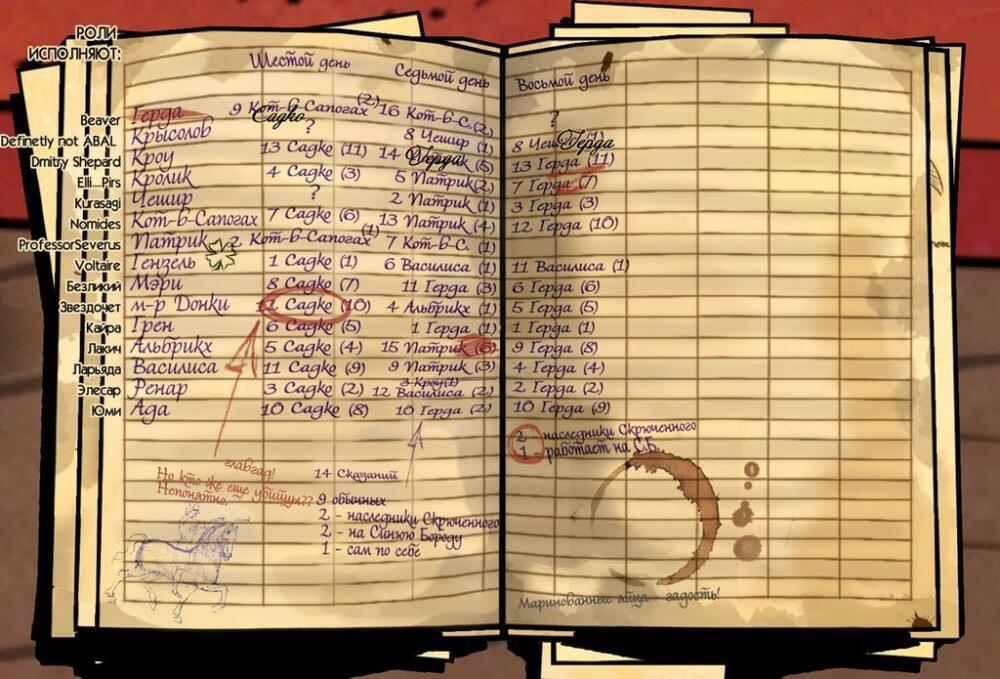 РОЛИ ИСПОЛНЯЮТ:
Шестой день Седьмой день Восьмой день
Beaver Герда 9 Кот-в-Сапогах (2) Садко 16 Кот-в-С. (2) ?
Definetly not ABAL Крысолов ? 8 Чешир (1) 8 Герда (1)
Dmitry Shepard Кроу 13 Садко (11) 14 Герда (5) 13 Герда (11)
Elli_Pirs Кролик 4 Садко (3) 5 Патрик (2) 7 Герда (7)
Kurasagi Чешир ? 2 Патрик (1) 3 Герда (3)
Nomides Кот-в-Сапогах 7 Садко (6) 13 Патрик (4) 12 Герда (10)
ProfessorSeverus Патрик 2 Кот-в-Сапогах (1) 7 Кот-в-С. (1)
Voltaire Гензель 1 Садко (1) 6 Василиса (1) 11 Василиса (1)
Безликий Мэри 8 Садко (7) 11 Герда (3) 6 Герда (6)
Звездочет м-р Донки 12 Садко (10) 4 Альбрикх (1) 5 Герда (5)
Кайра Грен 6 Садко (5) 1 Герда (1) 1 Герда (1)
Лакич Альбрикх 5 Садко (4) 15 Патрик (5) 9 Герда (8)
Ларьяда Василиса 11 Садко (9) 9 Патрик (3) 4 Герда (4)
3 Кроу(1)
Элесар Ренар 3 Садко (2) 12 Василиса (2) 2 Герда (2)
Юми Ада 10 Садко (8) 10 Герда (2) 10 Герда (9)
2 - наследники Скрюченного
1 - работает на С.Б.
главгад!
Но кто же еще убийцы??
Непонятно.
14 Сказаний
9 обычных
2 - наследники Скрюченного
2 - на Синюю Бороду
1 - сам по себе
Маринованные яйца - гадость!